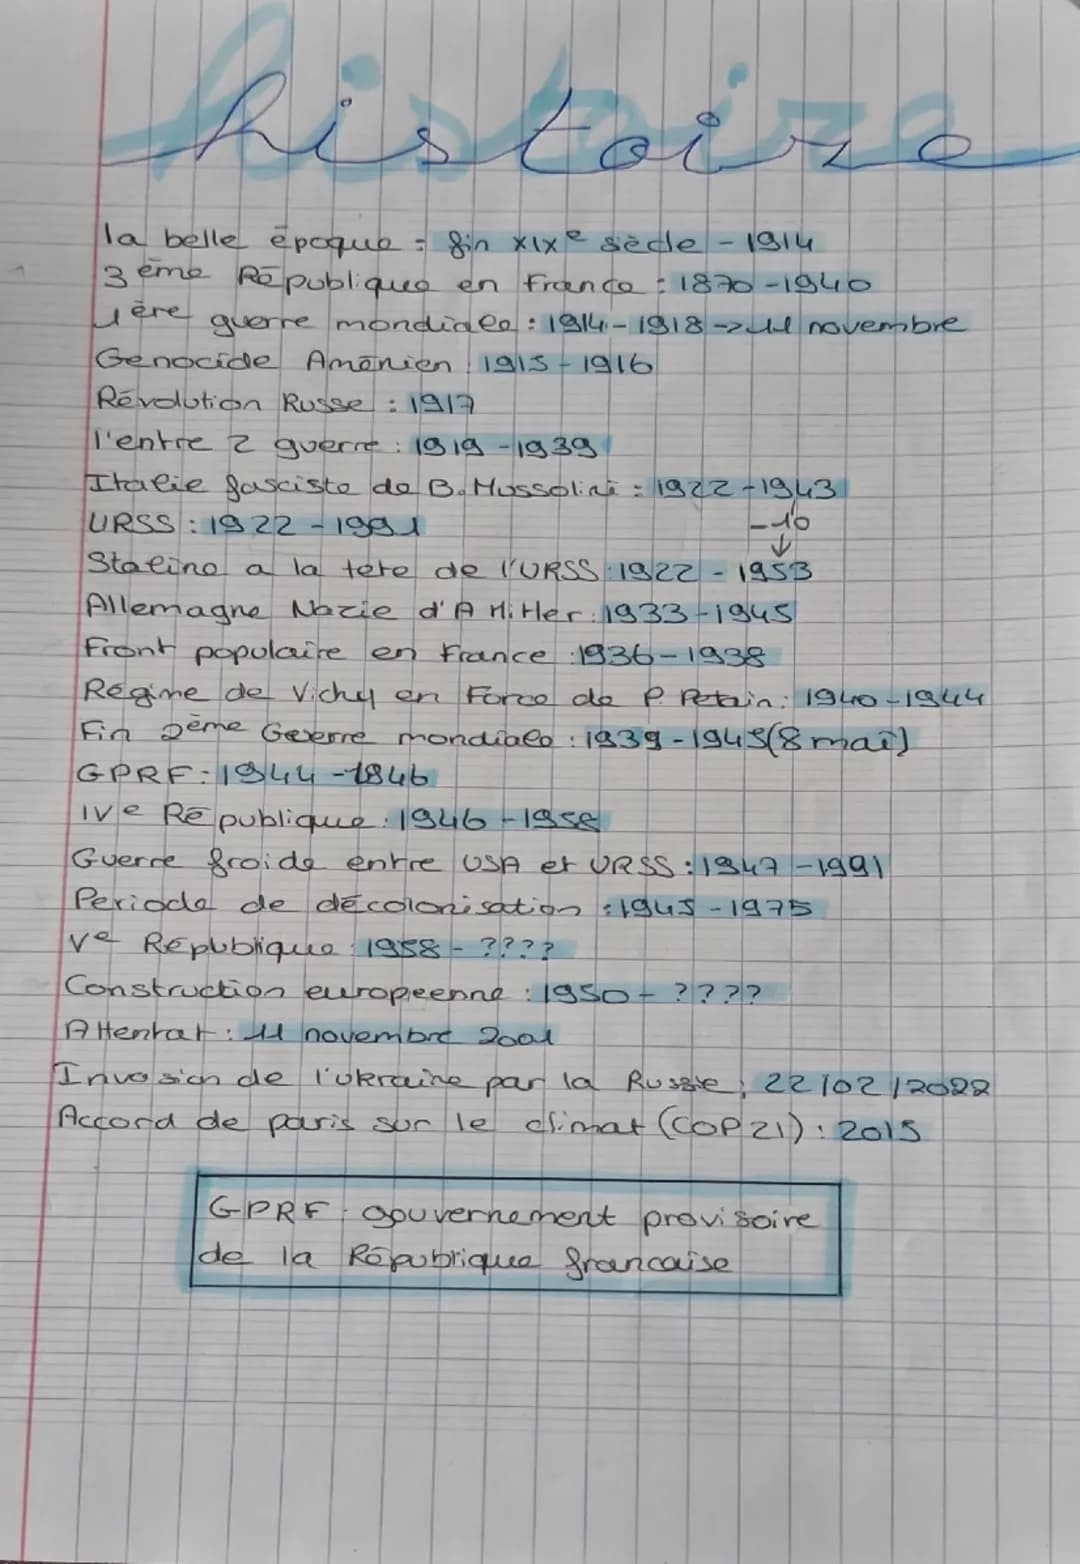 histoire
la belle époque = fin XIXe siècle - 1914
3ème République en France : 1870-1940
1ère guerre mondiale : 1914-1918 -> 11 novembre
Génocide Aménien : 1915-1916
Révolution Russe : 1917
l'entre 2 guerre : 1919-1939
Italie fasciste de B. Mussolini = 1922-1943
URSS : 1922-1991
-10
↓
Staline a la tete de l'URSS : 1922-1953
Allemagne Nazie d'A Hitler : 1933-1945
Front populaire en France : 1936-1938
Régime de Vichy en Force de P. Petain : 1940-1944
Fin 2ème Gererre mondiale : 1939-1945 (8 mai)
GPRF : 1944-1846
IVe République : 1946-1958
Guerre froide entre USA et URSS : 1947-1991
Periode de décolonisation : 1945-1975
Ve République : 1958-????
Construction europeenne : 1950-????
Attentat : 11 novembre 2001
Invosion de l'ukraine par la Russie ; 22/02/2022
Accord de paris sur le climat (COP21) : 2015
GPRF : gouvernement provisoire
de la République francaise